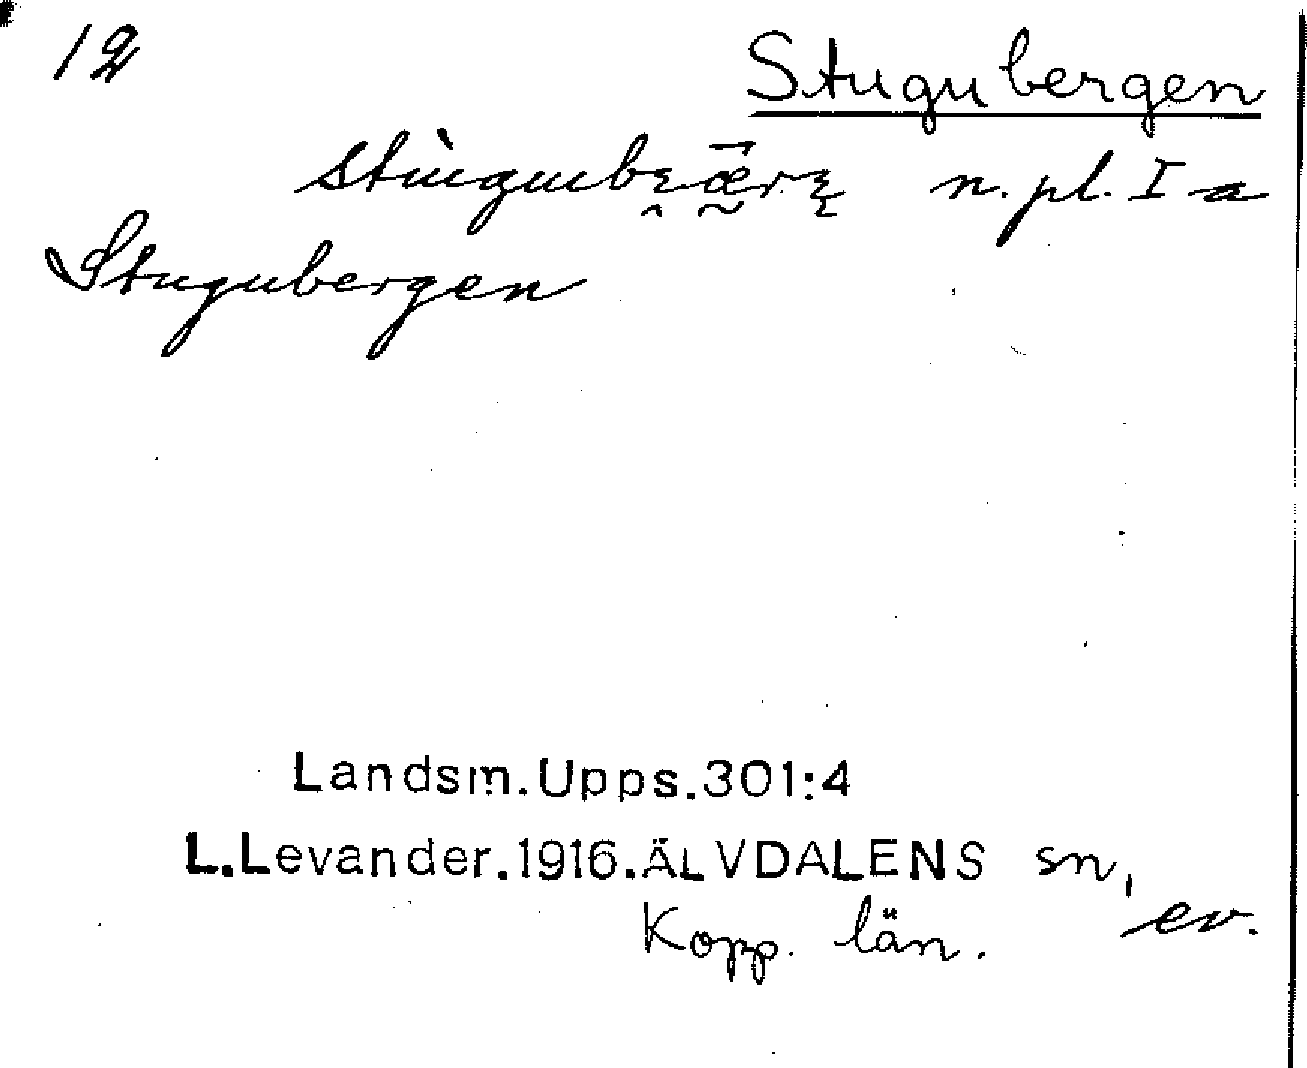 12
Stugubergen
n. pl. I a
Stugubergen
Landsm.Upps.301:4
L.Levander.1916.ÄLVDALENS sn,
Kopp. län. ev.